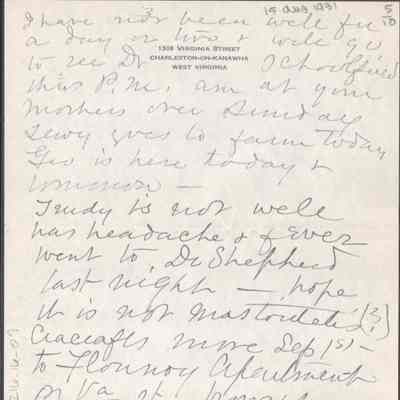 15 Aug 1931
5/10
I have not been well for
a day or two & will go
1308 VIRGINIA STREET
CHARLESTON-ON-KANAWHA
WEST VIRGINIA
to see Dr Schoolfield
this P.M. am at your
mothers over Sunday
goes to farm today
Geo is here today &
tomorrow —
Trudy is not well
has headache & fever
went to Dr Shepherd
last night — hope
it is not mastoiditis (?)
move Sep 1st —
to Flournoy Apartment
on Va st